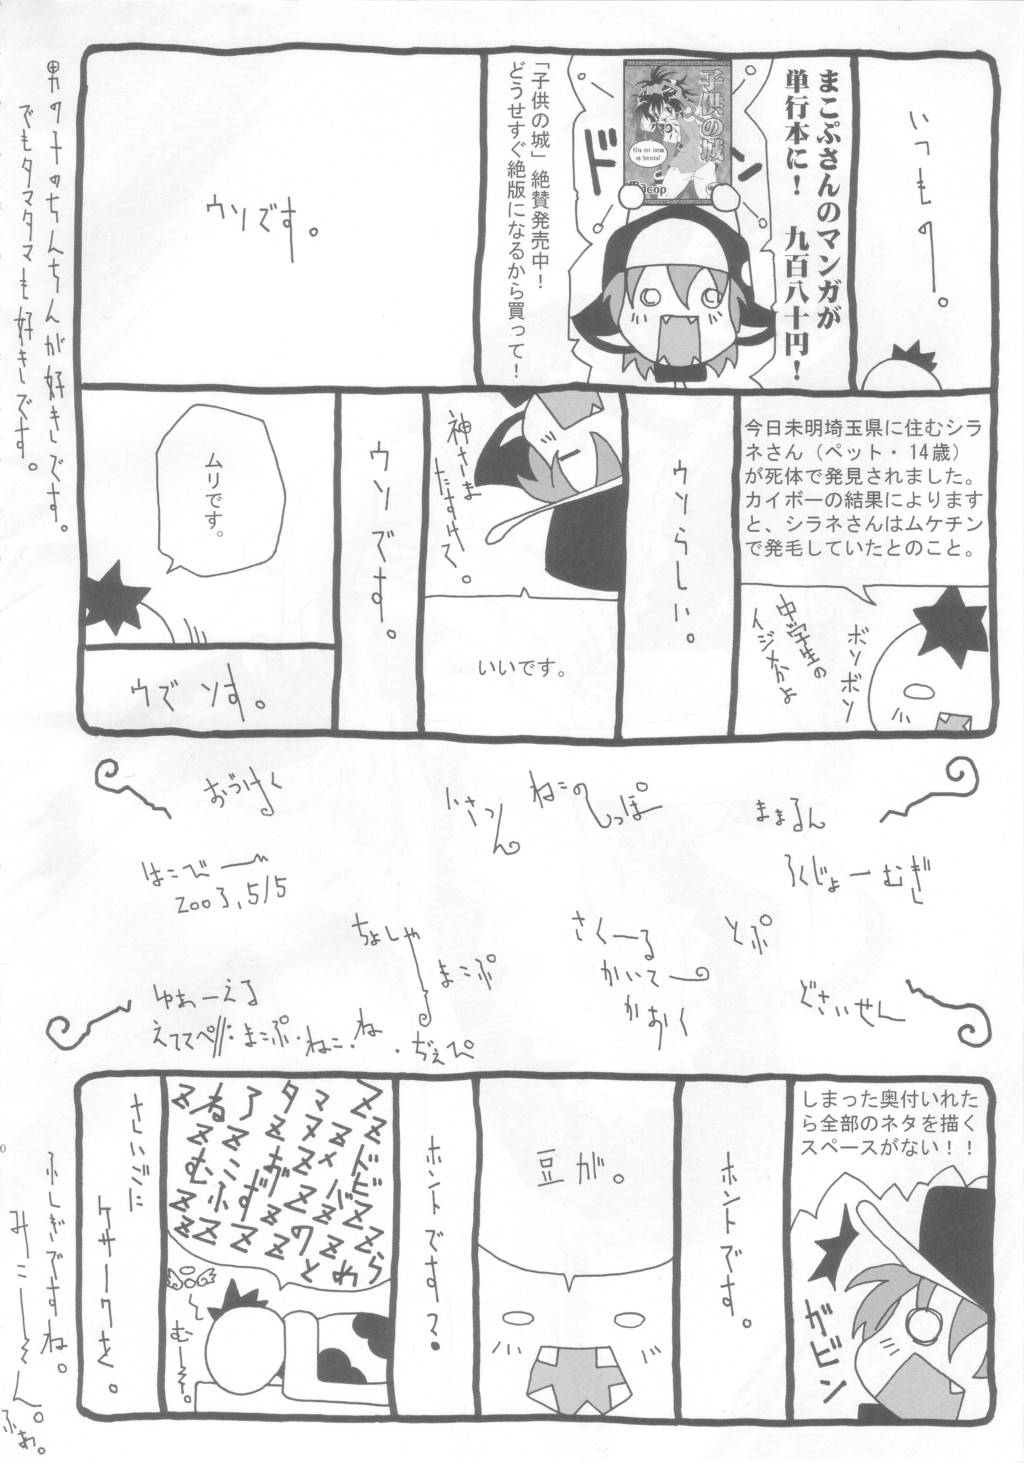 いつもの。
まこぷさんのマンガが
単行本に！　九百八十円！
ドン
子供の城
「子供の城」絶賛発売中！
どうせすぐ絶版になるから買って！
ウソです。
今日未明埼玉県に住むシラ
ネさん（ペット・14歳）
が死体で発見されました。
カイボーの結果によります
と、シラネさんはムケチン
で発毛していたとのこと。
ボソボソ
中学生の
イジメかよ
ウソらしい。
神さま
たすけて。
いいです。
ウソです。
ムリです。
ウズ ソす。
男の子のちんちんが好きです。
でもタマタマも好きです。
おづけく
ねこの
しっぽ
ままるん
ろくじょーむぎ
はこびー
2003.5/5
ちょしゃ
まこぷ
さくーる
かいてー
かおく
とぷ
どさいせん
ゆあーえる
しまった奥付いれた
ら全部のネタを描く
スペースがない！！
ガビン
ホントです。
豆が。
ホントです？
むーん。
さいごに
ケサークを。
ふしぎですね。
みこーん。
ふぁ。